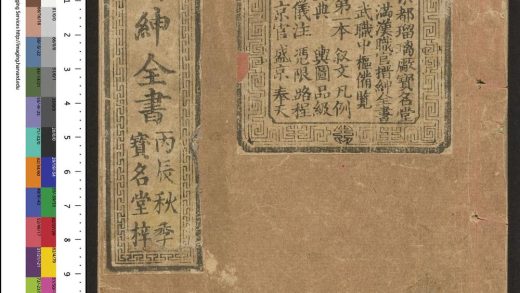 京都瑠璃厰寶名堂
滿漢職官搢紳全書
武職中樞備覽
第一本 敘文 凡例
典 輿圖 品級
儀注 憑限 路程
京官 盛京 奉天
紳全書
丙辰秋季
寶名堂梓
ging Services http://imaging.harvard.edu
2
3
4
5
6
7
8
9